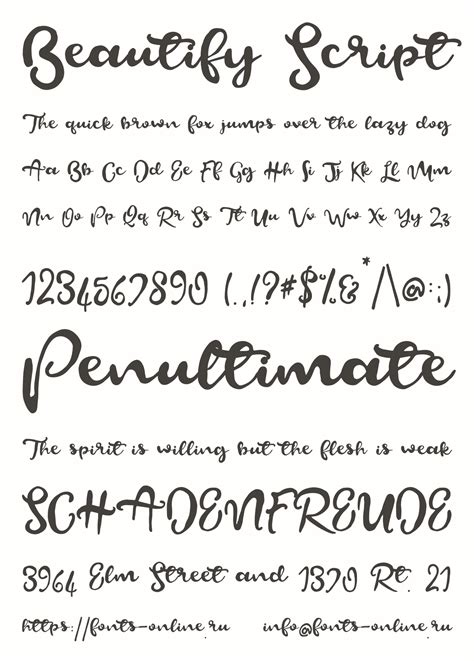 Beautify Script
The quick brown fox jumps over the lazy dog
Aa Bb Cc Dd Ee Ff Gg Hh Ii Tj Kk Ll Mm
Nn Oo Pp Qq Rr Ss Tt Uu Vv Ww Xx Yy Zz
1234567890 (.,!?#$%&*/|\@:;)
Penultimate
The spirit is willing but the flesh is weak
SCHADENFREUDE
3964 Elm Street and 1370 Rt. 21
https://fonts-online.ru info@fonts-online.ru